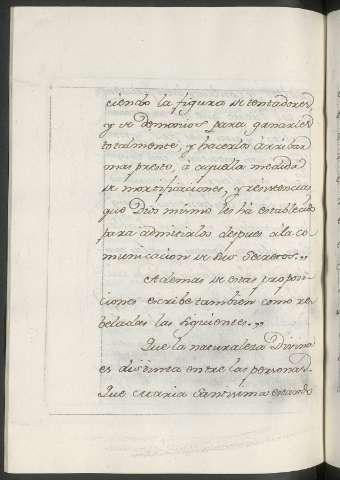 ciendo la figura de tentadores,
y de demonios para ganarles
totalmente, y hacerlos arribar
mas presto, à aquella medida
de mortificaciones, y resistencias,
que Dios mismo les há establecido
para admitirlos despues à la co-
municacion de sus Secretos.,,
Ademas de estas proposi-
ciones escribe tambien como re-
beladas las siguientes.,,
Que la naturaleza Divina
es distinta entre las personas.
Que Maria Santisima estando